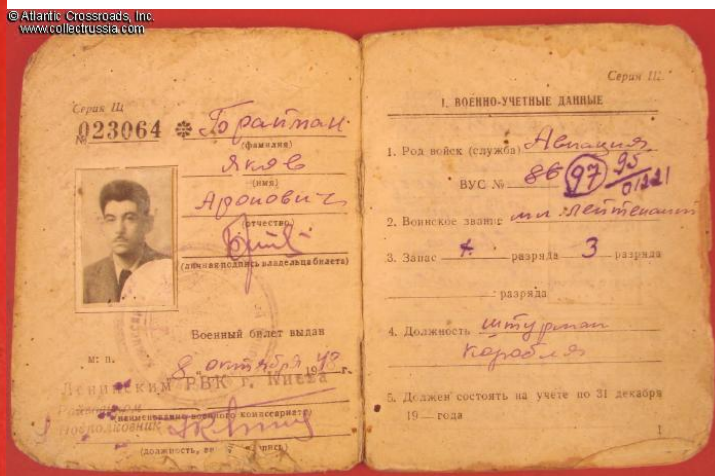 © Atlantic Crossroads, Inc.
www.collectrussia.com
Серия Щ
№ 023064
(фамилия)
Яков
(имя)
Аронович
(отчество)
(личная подпись владельца билета)
Военный билет выдан
м. п. 8 октября 1948 г.
Ленинским РВК г. Киева
(наименование военного комиссариата)
Подполковник
(должность, подпись)
Серия Щ.
I. ВОЕННО-УЧЕТНЫЕ ДАННЫЕ
1. Род войск (служба) Авиация
ВУС № 86 97 95
2. Воинское звание мл. лейтенант
3. Запас разряда 3 разряда
разряда
4. Должность штурман
корабля
5. Должен состоять на учете по 31 декабря
19— года
1